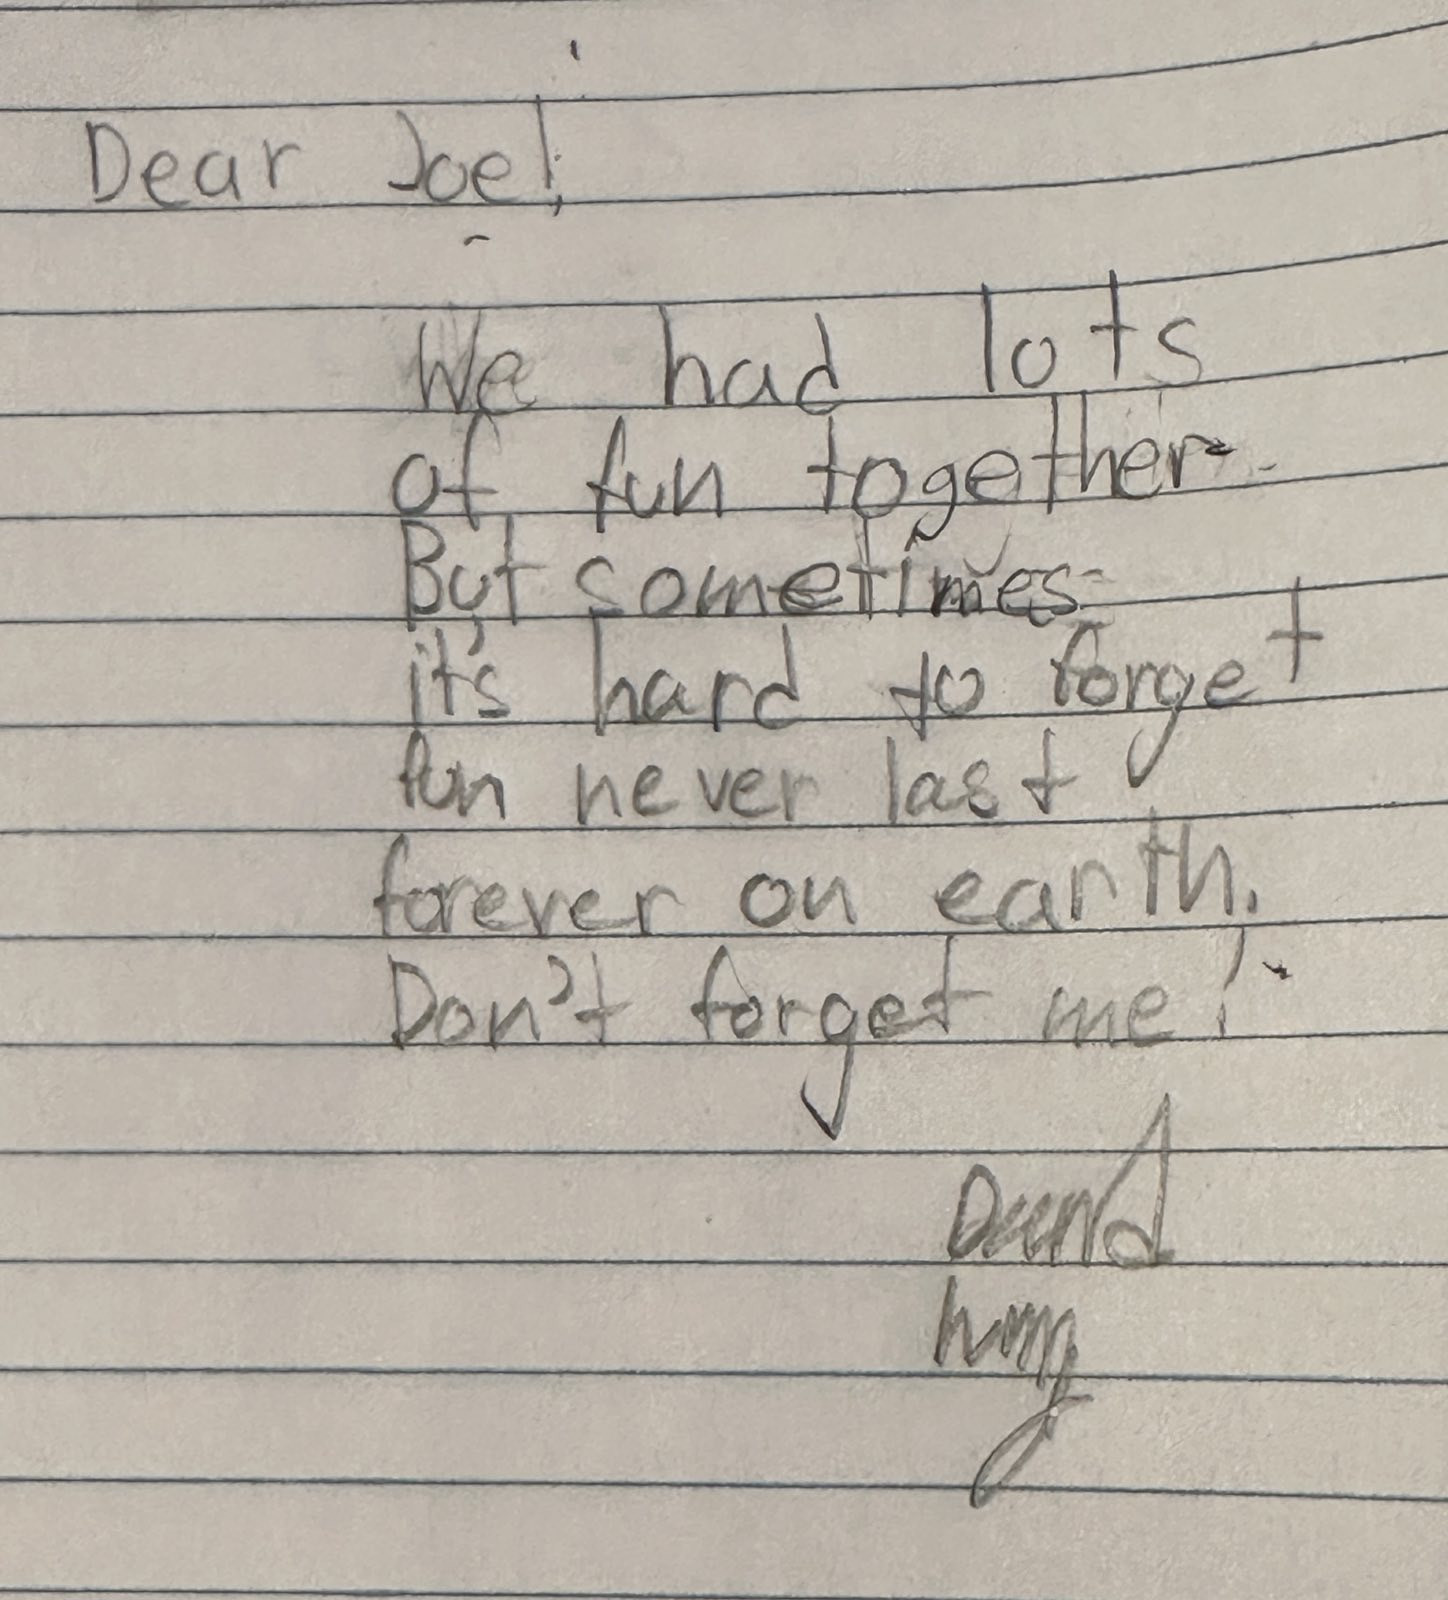 Dear Joel,
We had lots
of fun together.
But sometimes
it's hard to forget
fun never last
forever on earth.
Don't forget me!
David